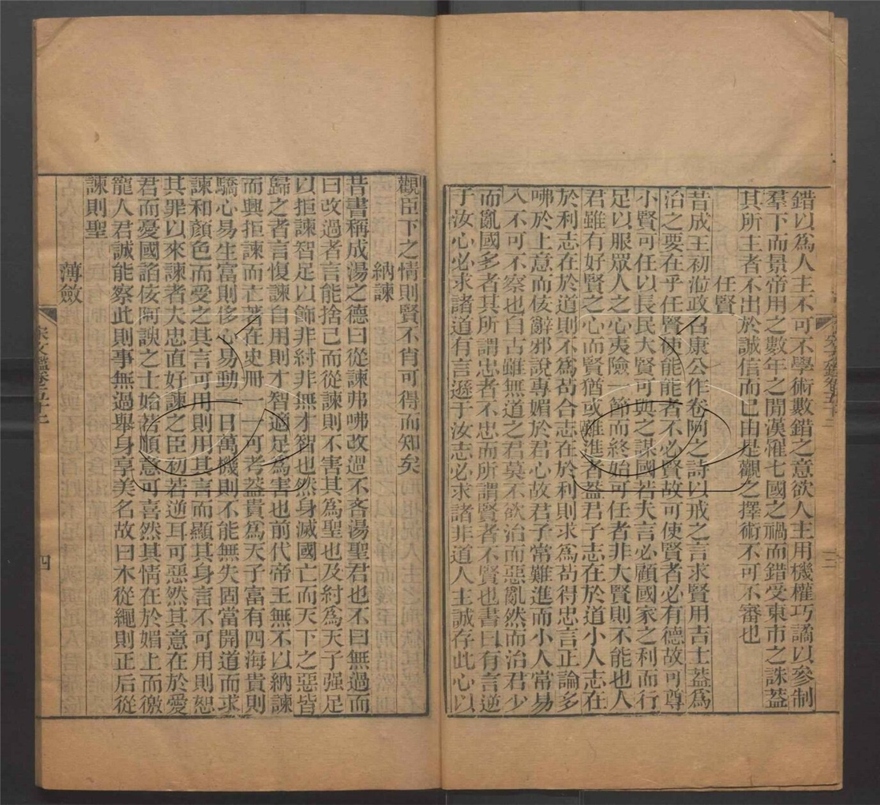 錯以爲人主不可不學術數錯之意欲人主用機權巧譎以參制
羣下而景帝用之數年之閒漢罹七國之禍而錯受東市之誅蓋
其所主者不出於誠信而已由是觀之擇術不可不審也
任賢
昔成王初涖政召康公作卷阿之詩以戒之言求賢用吉士蓋爲
治之要在乎任賢使能能者不必賢故可使賢者必有德故可尊
小賢可任以長民大賢可與之謀國若夫言必顧國家之利而行
足以服眾人之心夷險一節而終始可任者非大賢則不能也人
君雖有好賢之心而賢猶或難進者蓋君子志在於道小人志在
於利志在於道則不爲苟合志在於利則求爲苟得忠言正論多
咈於上意而佞辭邪說專媚於君心故君子常難進而小人常易
入不可不察也自古雖無道之君莫不欲治而惡亂然而治君少
而亂國多者其所謂忠者不忠而所謂賢者不賢也書曰有言逆
于汝心必求諸道有言遜于汝志必求諸非道人主誠存此心以
宋文鑑卷五十二
三
觀臣下之情則賢不肖可得而知矣
納諫
昔書稱成湯之德曰從諫弗咈改過不吝湯聖君也不曰無過而
曰改過者言能捨己而從諫則不害其爲聖也及紂爲天子强足
以拒諫智足以飾非紂非無才智也然身滅國亡而天下之惡皆
歸之者言愎諫自用則才智適足爲害也前代帝王無不以納諫
而興拒諫而亡著在史冊一一可考蓋貴爲天子富有四海貴則
驕心易生富則侈心易動一日萬機則不能無失固當開道而求
諫和顏色而受之其言可用則用其言而顯其身言不可用則恕
其罪以來諫者夫忠直好諫之臣初若逆耳可惡然其意在於愛
君而憂國諂佞阿諛之士始若順意可喜然其情在於媚上而徼
寵人君誠能察此則事無過舉身享美名故曰木從繩則正后從
諫則聖
薄斂
宋文鑑卷五十二
四